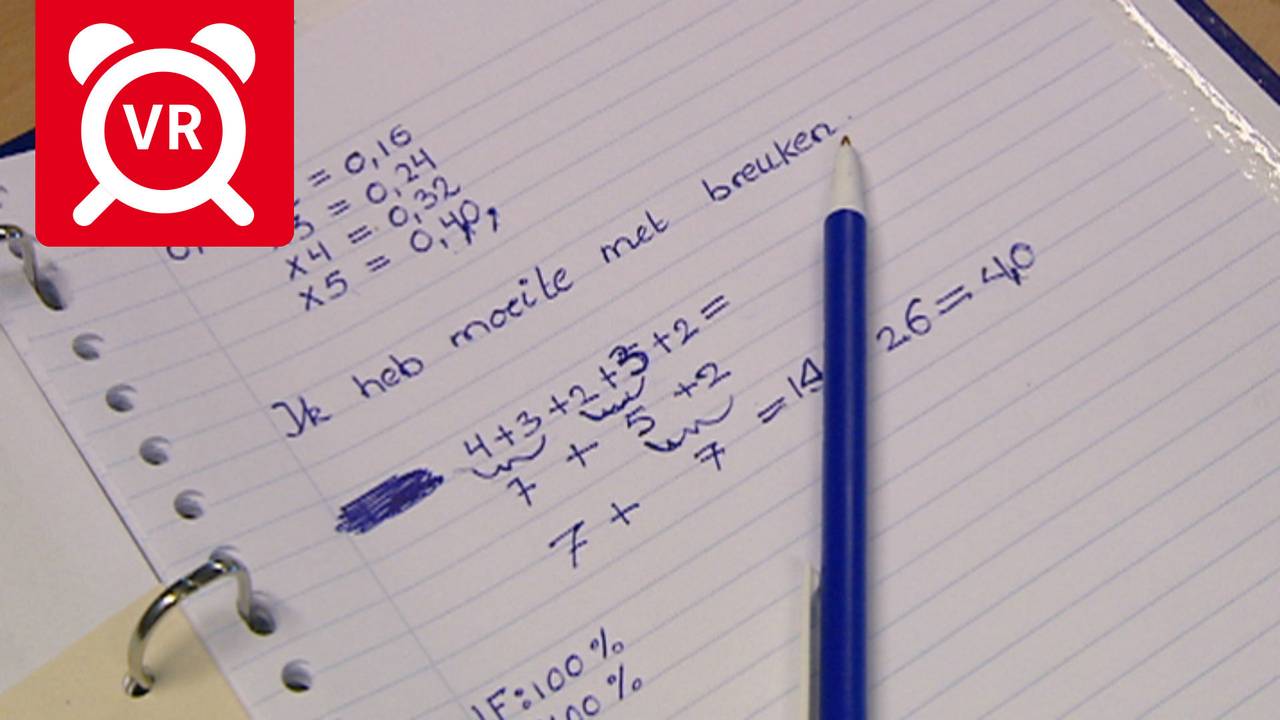 VR
= 0,16
x3 = 0,24
x4 = 0,32
x5 = 0,40,
Ik heb moeite met breuken.
4+3+2+3+2=
7 + 5 +2
7 + 7 =14 26=40
1F:100%
100%